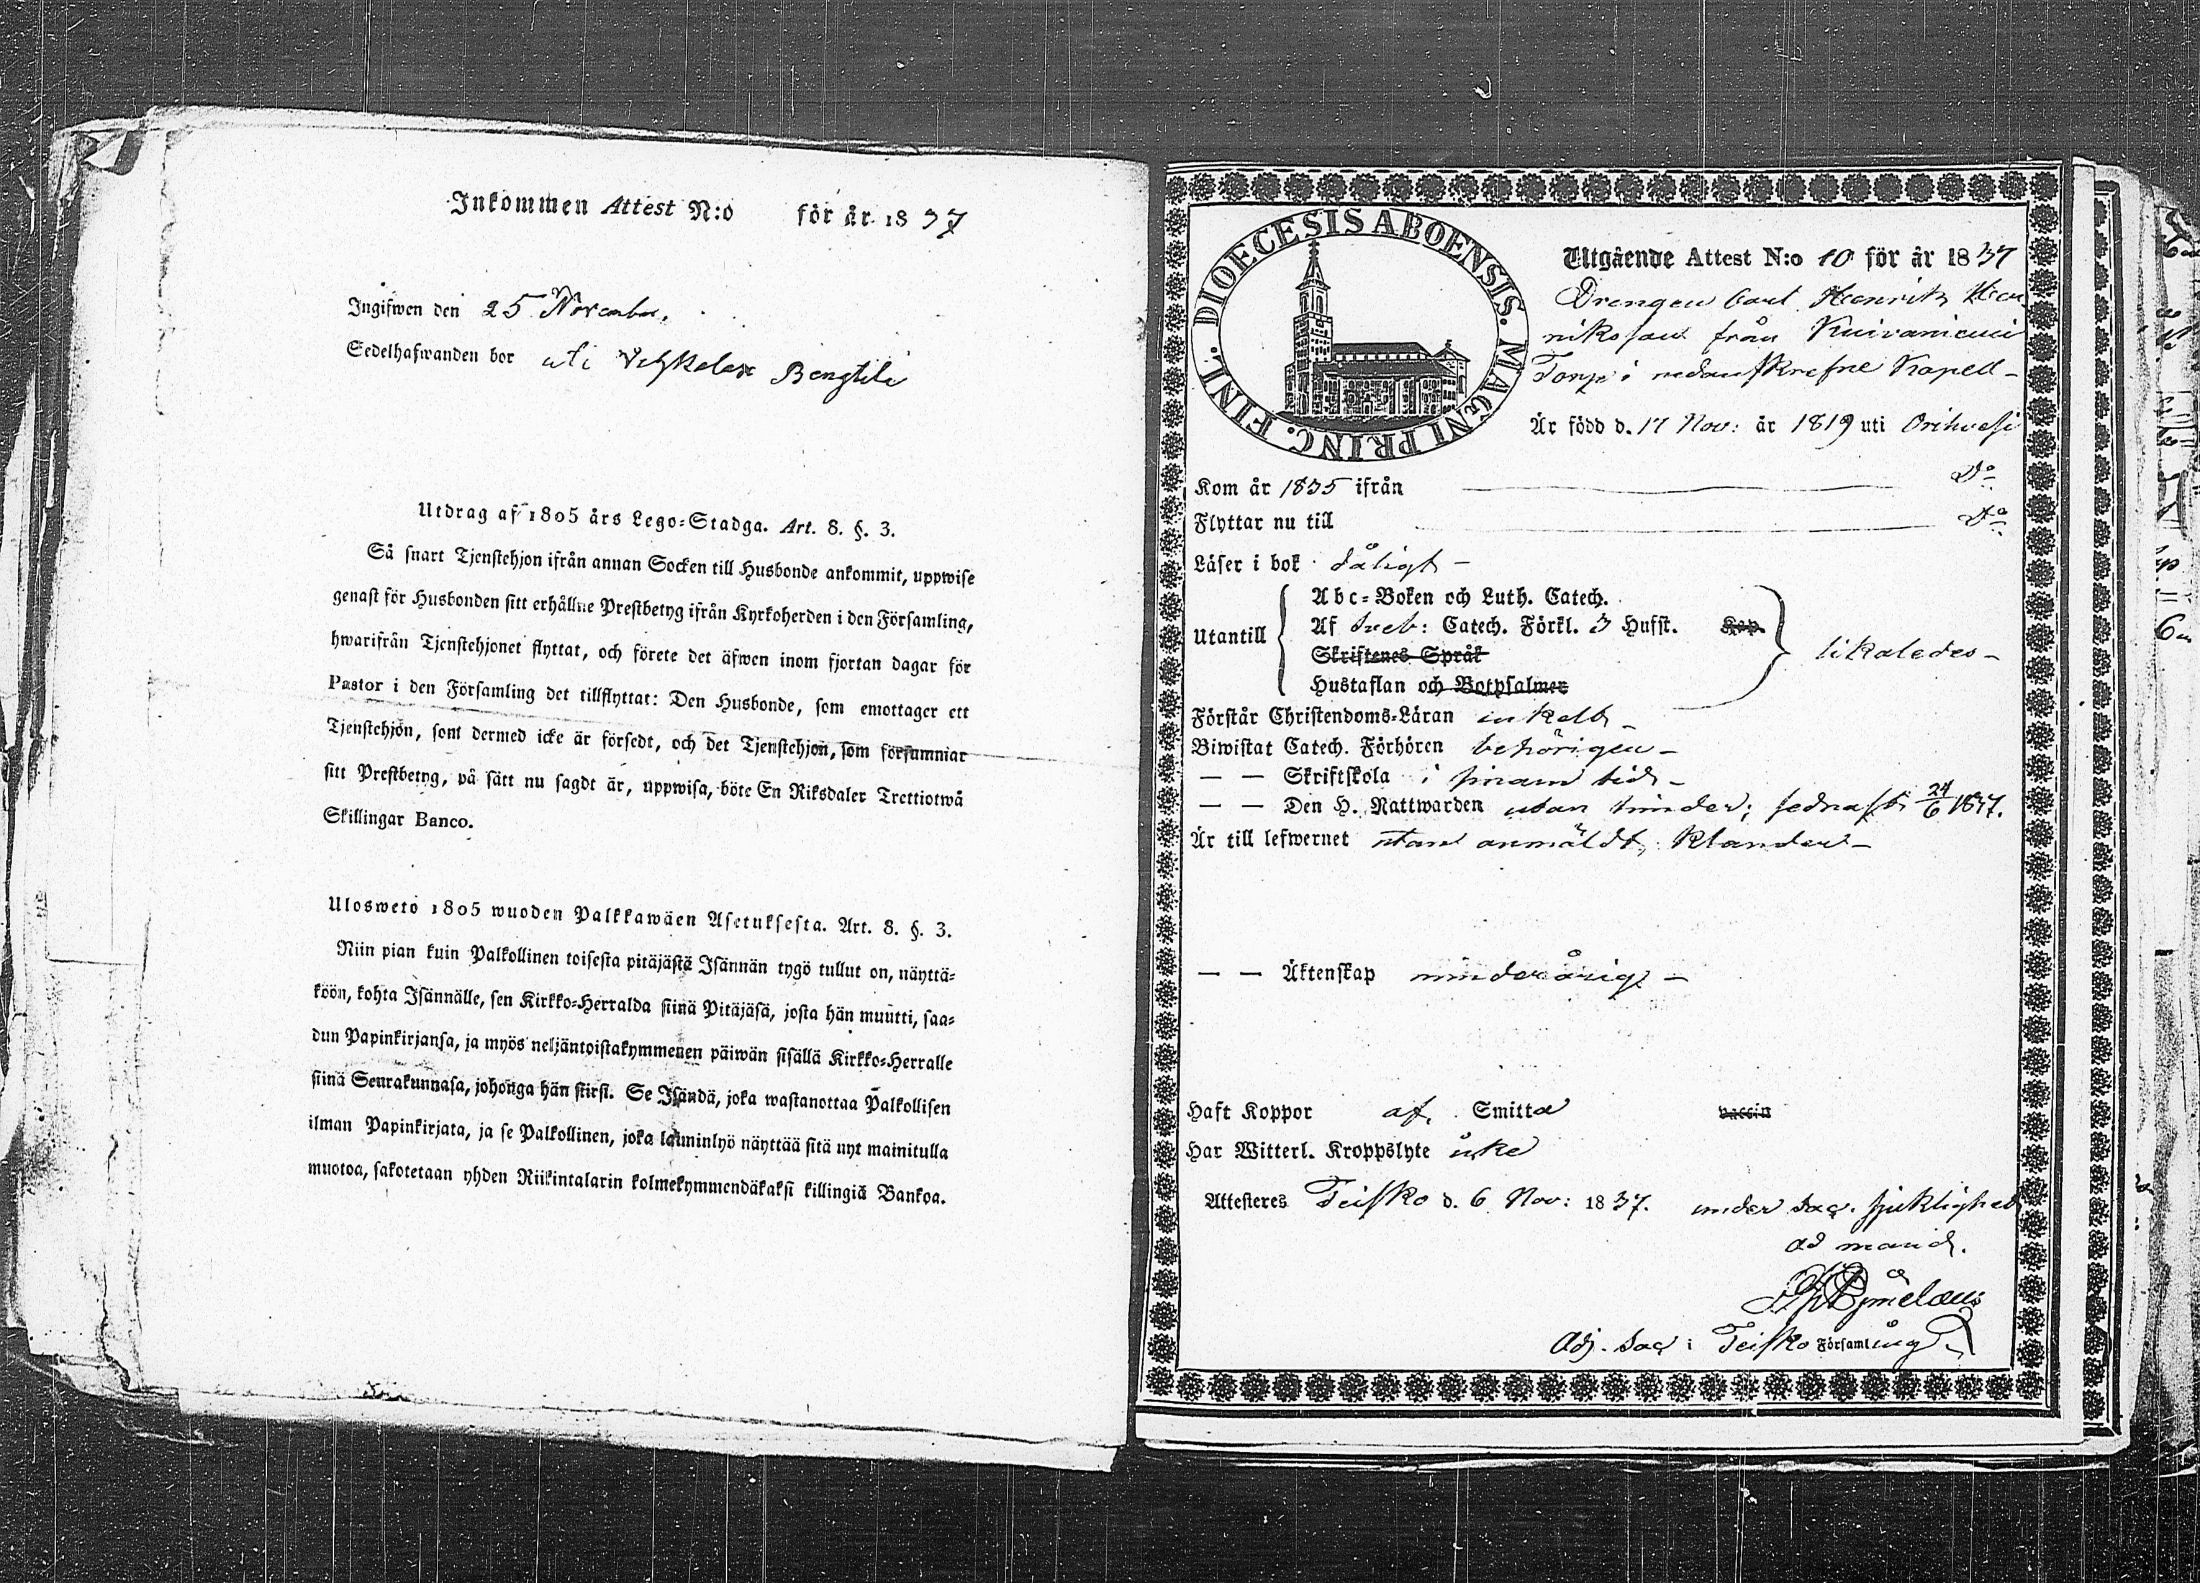 Inkommen Attest N:o för år 1837
Ingifwen den 25 November.
Sedelhafwanden bor uti Bengtilä
Utdrag af 1805 års Lego-Stadga. Art. 8. §. 3.
Så snart Tjenstehjon ifrån annan Socken till Husbonde ankommit, uppwise
genast för Husbonden sitt erhållne Prestbetyg ifrån Kyrkoherden i den Församling,
hwarifrån Tjenstehjonet flyttat, och förete det äfwen inom fjortan dagar för
Pastor i den Församling det tillflyttat: Den Husbonde, som emottager ett
Tjenstehjon, som dermed icke är försedt, och det Tjenstehjon, som försummar
sitt Prestbetyg, på sätt nu sagdt är, uppwisa, böte En Riksdaler Trettiotwå
Skillingar Banco.
Ulosweto 1805 wuoden Palkkawäen Asetuksesta. Art. 8. §. 3.
Niin pian kuin Palkollinen toisesta pitäjästä Isännän tygö tullut on, näyttä-
köön, kohta Isännälle, sen Kirkko-Herralda siinä Pitäjäsä, josta hän muutti, saa-
dun Papinkirjansa, ja myös neljäntoistakymmenen päiwän sisällä Kirkko-Herralle
siinä Seurakunnasa, johonga hän siirsi. Se Isändä, joka wastanottaa Palkollisen
ilman Papinkirjata, ja se Palkollinen, joka laiminlyö näyttää sitä nyt mainitulla
muotoa, sakotetaan yhden Riikintalarin kolmekymmendäkaksi killingiä Bankoa.
DIOECESIS ABOENSIS. MAGNI PRINC. FINL.
Utgående Attest N:o 10 för år 1837
Drengen Carl Henrik Hen
riksson från Kuivaniemi
Torp i nedanskrefne Kapell-
Är född d. 17 Nov: år 1819 uti Orihvesi
Kom år 1835 ifrån D:o
Flyttar nu till D:o
Läser i bok dåligt -
Utantill
Abc-Boken och Luth. Catech.
Af Sveb: Catech. Förkl. 3 Hufst. Kap.
Skriftenes Språk
Hustaflan och Botpsalmer
likaledes -
Förstår Christendoms-Läran enkelt -
Biwistat Catech. Förhören behörigen -
— — Skriftskola i sinom tid -
— — Den H. Nattwarden utan hinder; sednast 24/6 1837.
Är till lefwernet utan anmäldt klander -
— — Äktenskap minderårig -
Haft Koppor af Smitta vaccin
Har Witterl. Kroppslyte icke
Attesteres Teisko d. 6 Nov: 1837. under Sac. sjuklighet
ad mand.
Adj. Sac. i Teisko Församling